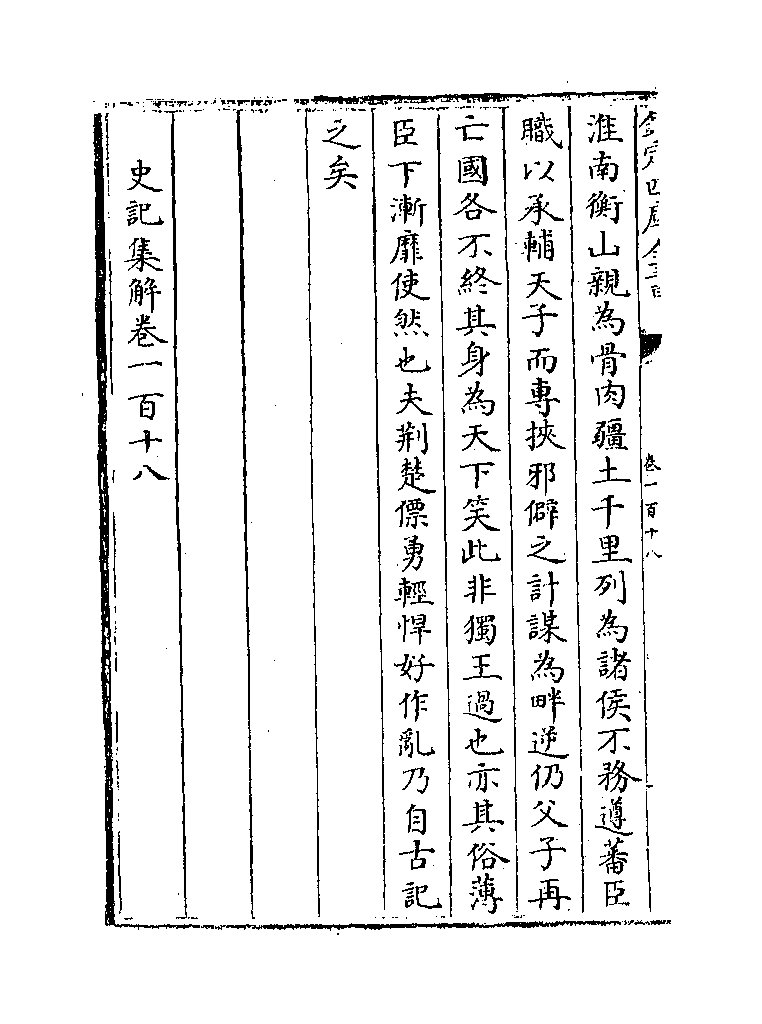 欽定四庫全書
卷一百十八
淮南衡山親為骨肉疆土千里列為諸侯不務遵蕃臣
職以承輔天子而專挾邪僻之計謀為畔逆仍父子再
亡國各不終其身為天下笑此非獨王過也亦其俗薄
臣下漸靡使然也夫荆楚僄勇輕悍好作亂乃自古記
之矣
史記集解卷一百十八